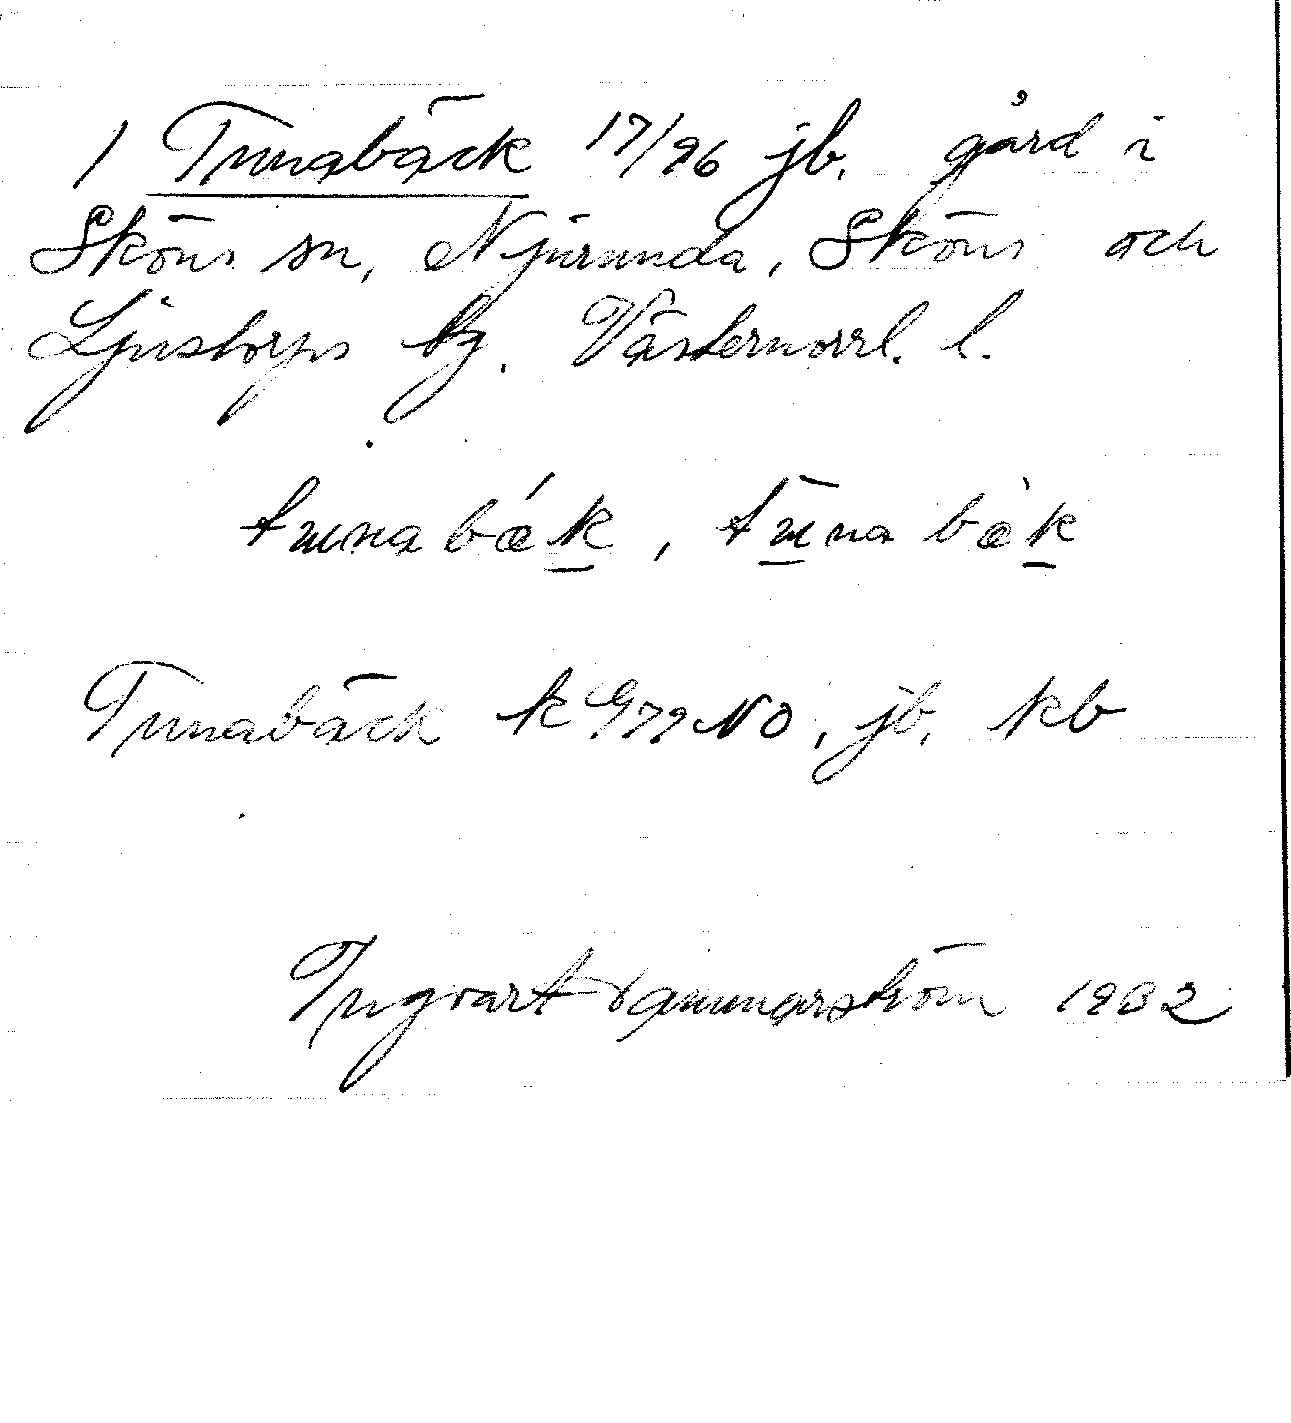 1 Tunabäck 17/96 jb. gård i
Sköns sn, Njurunda, Sköns och
Ljustorps tg. Västernorrl. l.
tunabæ̀k, tunabæ̀k
Tunabäck k G79NO, jb, kb
Ingvart 1932